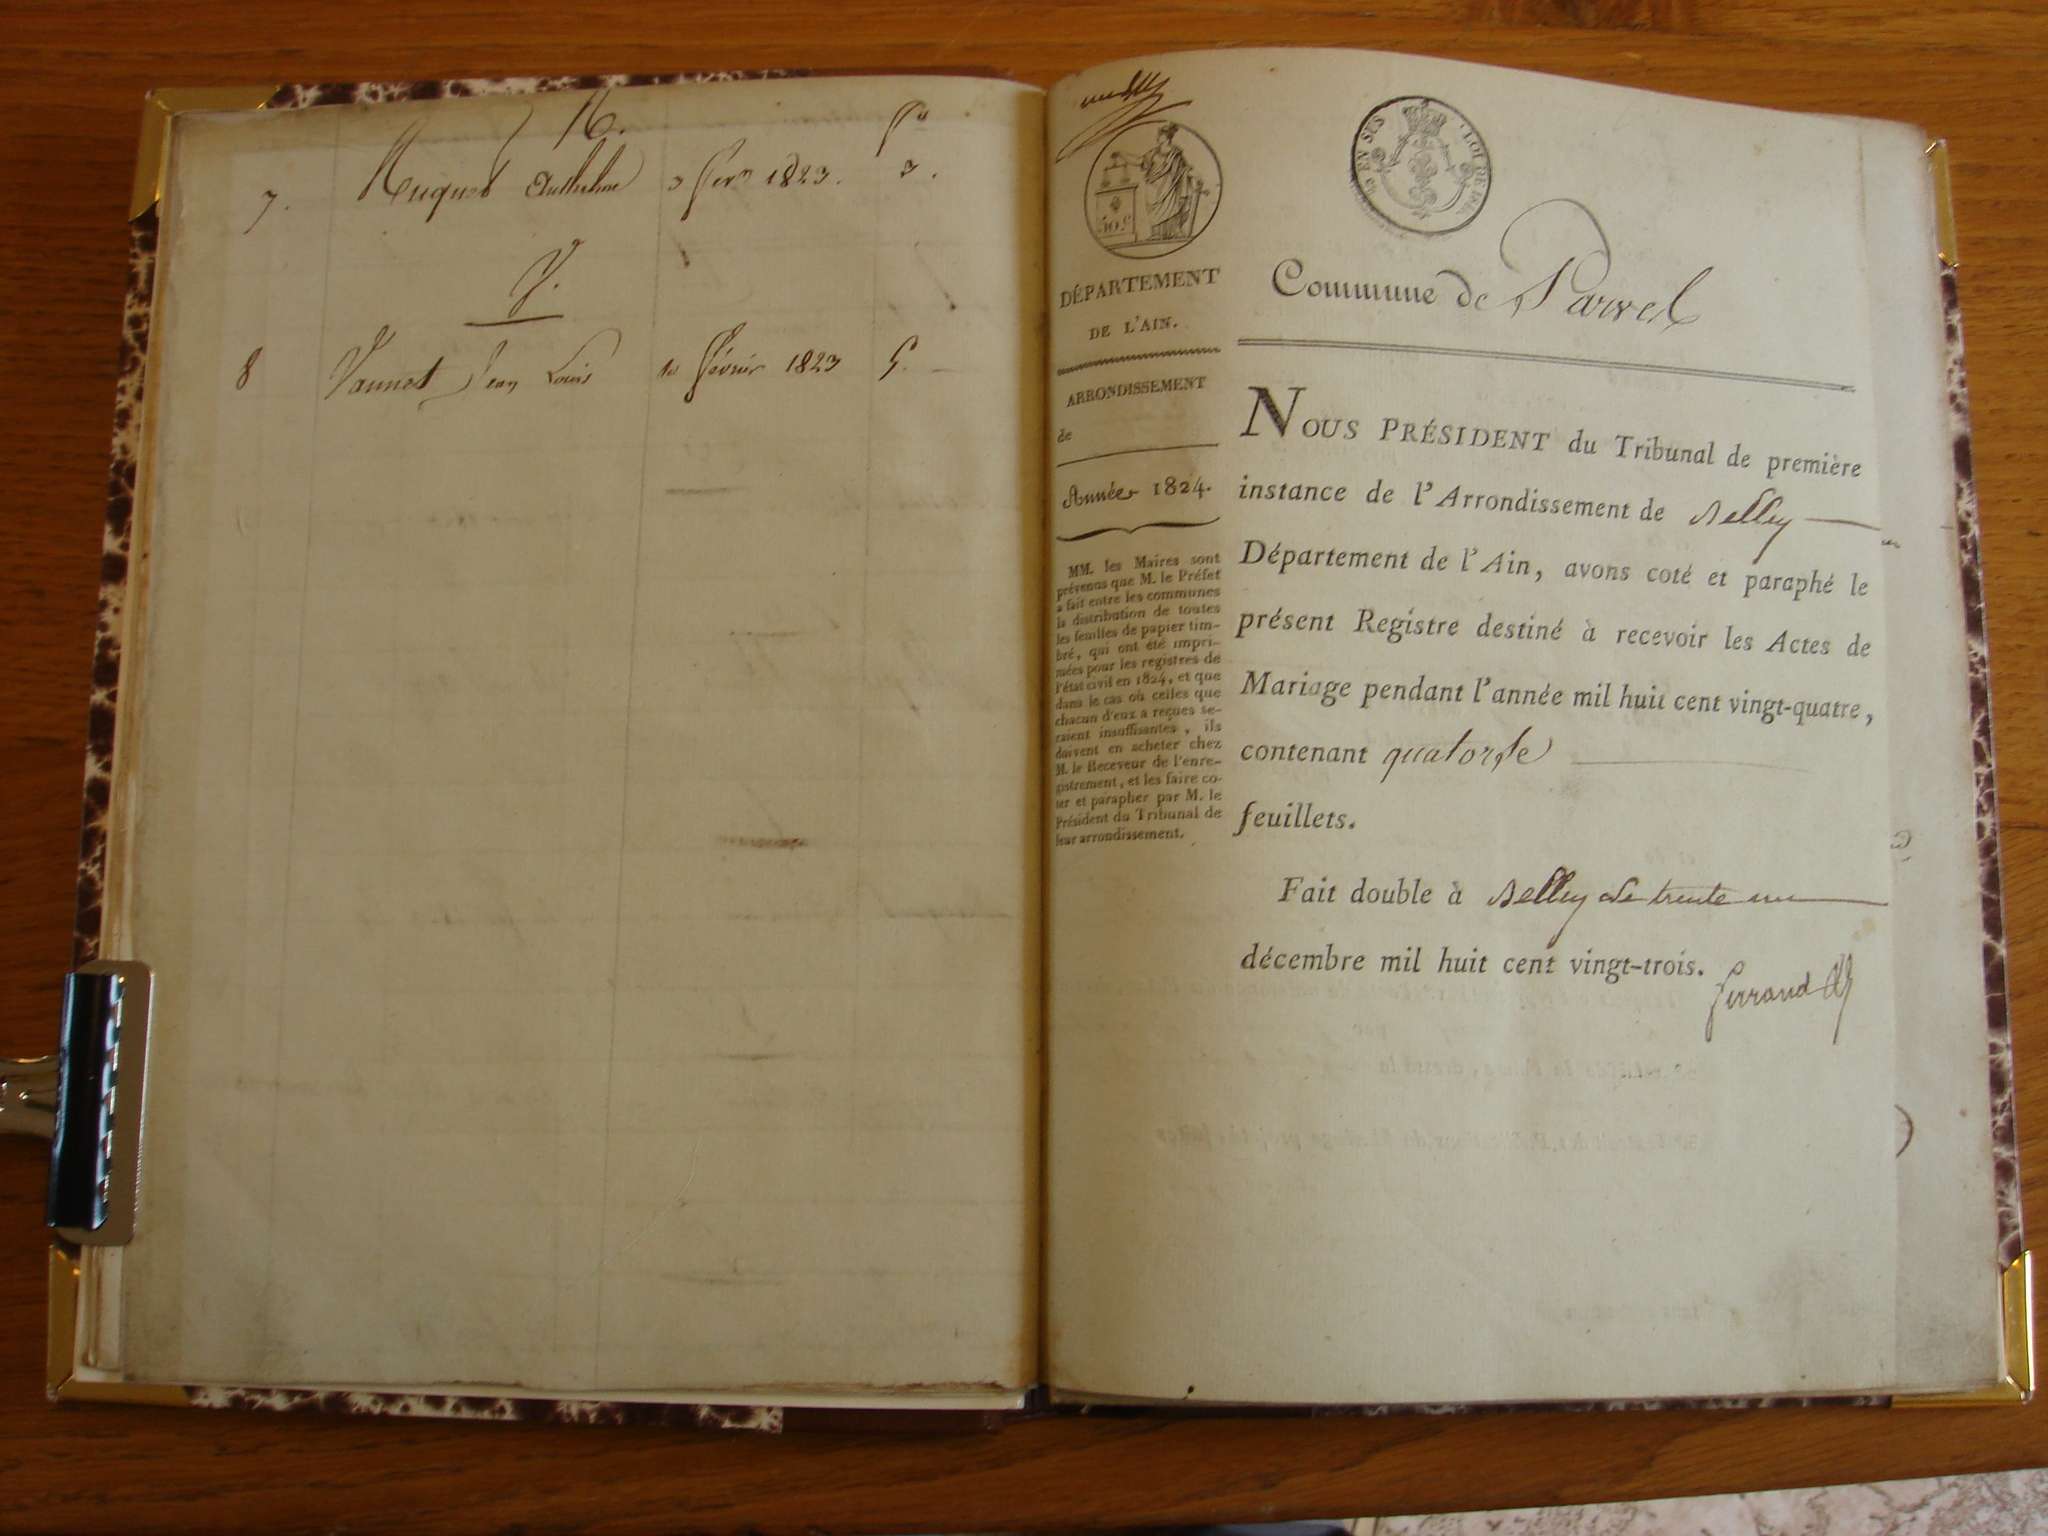 7. Huguet Anthelme 3 fevr 1823. 3.
V.
8 Vannot Jean Louis 10 février 1823 5.
50 C
EN SUS
DÉPARTEMENT
DE L'AIN.
ARRONDISSEMENT
de
Année 1824.
MM. les Maires sont
prévenus que M. le Préfet
a fait entre les communes
la distribution de toutes
les feuilles de papier tim-
bré, qui ont été impri-
mées pour les registres de
l'état civil en 1824, et que
dans le cas où celles que
chacun d'eux a reçues se-
raient insuffisantes, ils
doivent en acheter chez
M. le Receveur de l'enre-
gistrement, et les faire co-
ter et parapher par M. le
Président du Tribunal de
leur arrondissement.
Commune de Parves
NOUS PRÉSIDENT du Tribunal de première
instance de l'Arrondissement de Belley
Département de l'Ain, avons coté et paraphé le
présent Registre destiné à recevoir les Actes de
Mariage pendant l'année mil huit cent vingt-quatre,
contenant quatorze
feuillets.
Fait double à Belley le trente un
décembre mil huit cent vingt-trois.